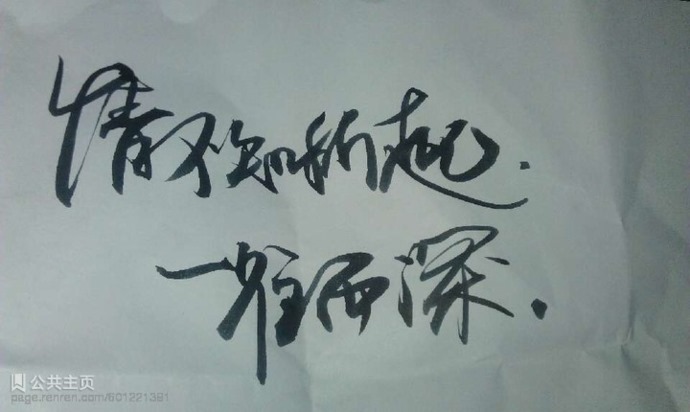 情不知所起.
一往而深.
公共主页
page.renren.com/601221361